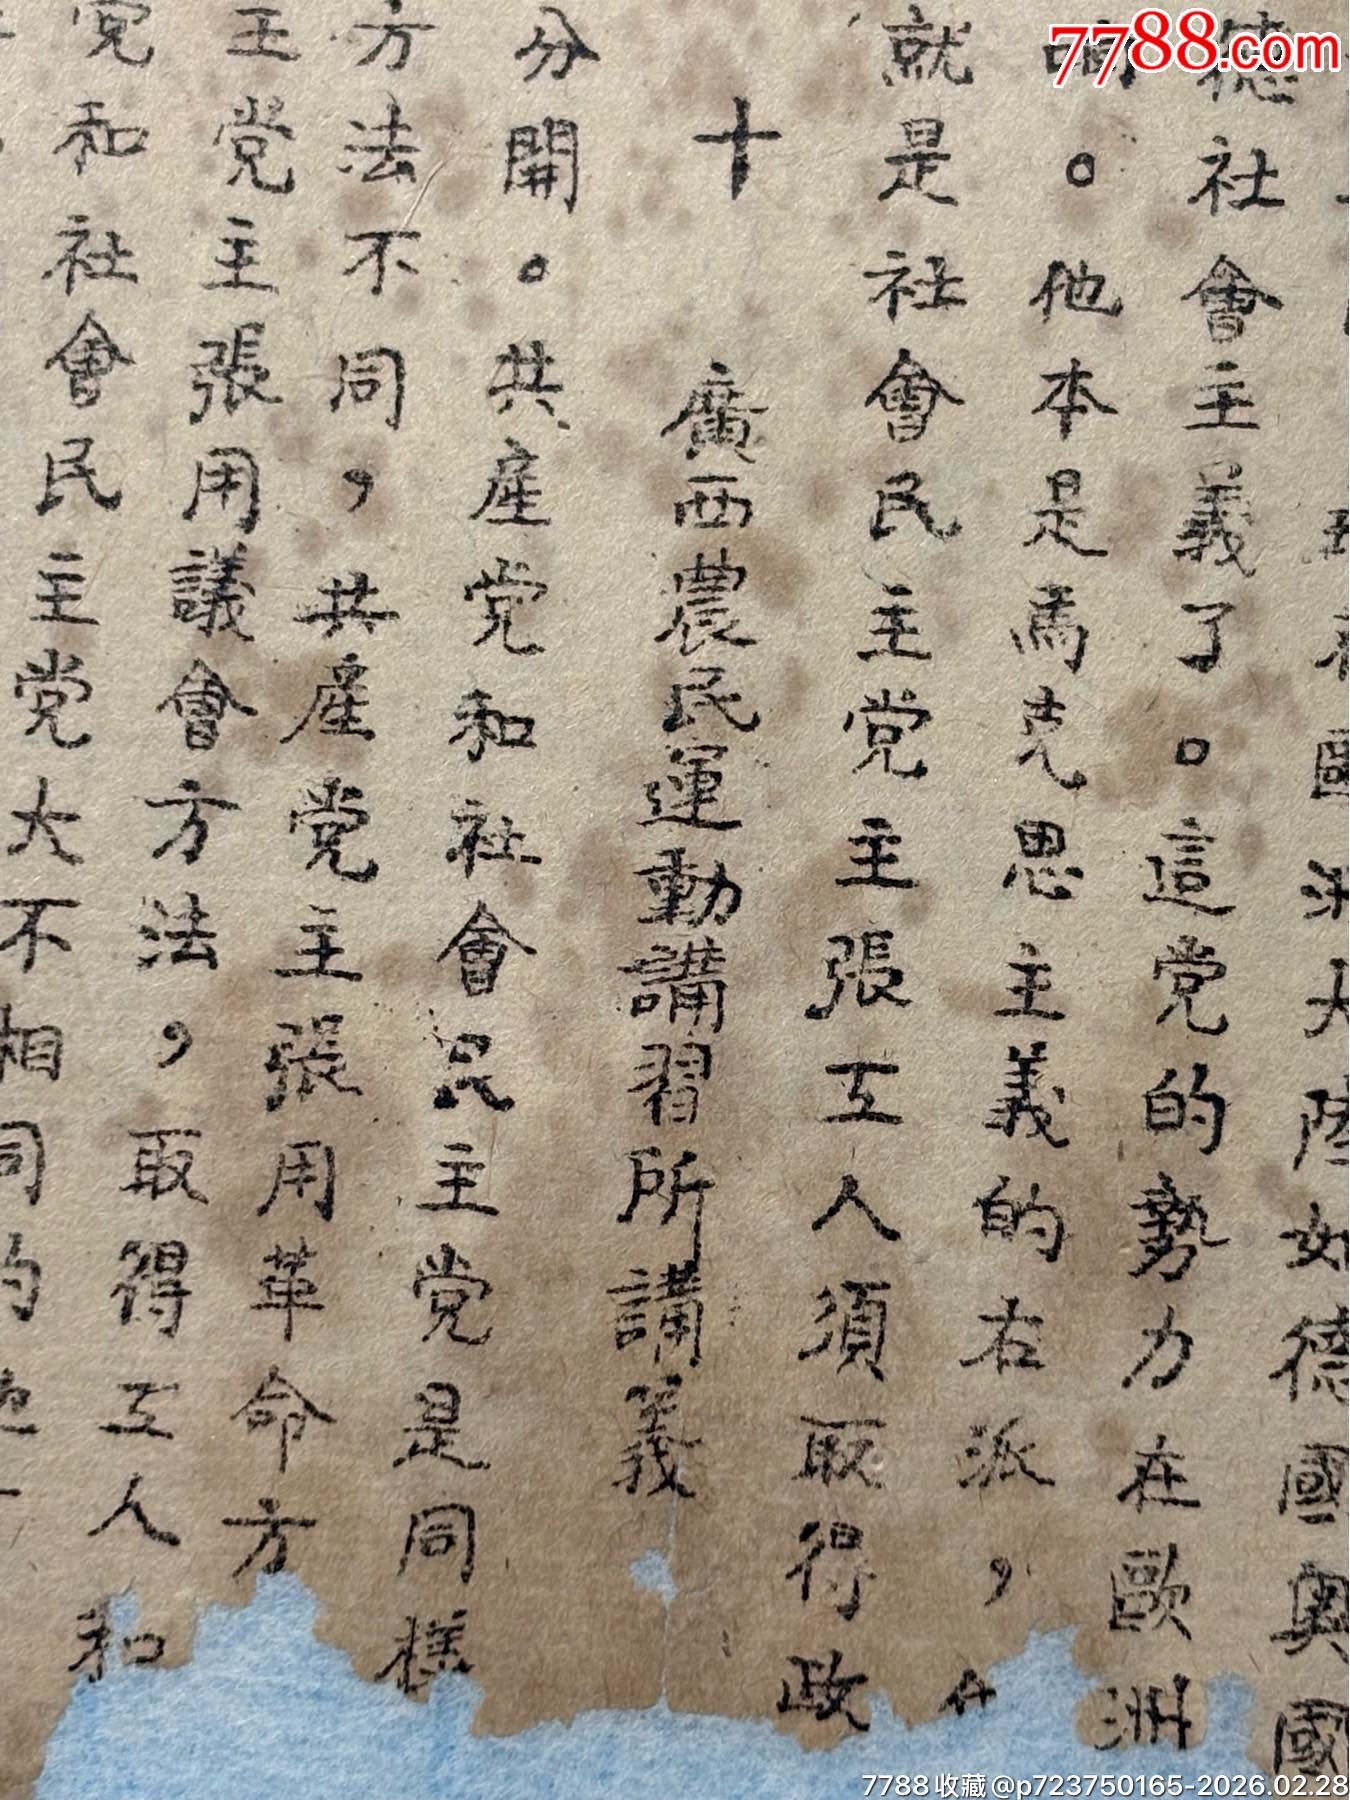 國洲大陸如德國奧國
德社會主義了。這党的勢力在歐洲
。他本是馬克思主義的右派，
就是社會民主党主張工人須取得政
十 廣西農民運動講習所講義
分開。共產党和社會民主党是同樣
方法不同，共產党主張用革命方
主党主張用議會方法，取得工人和
党和社會民主党大不相同的
7788.com
7788收藏@p723750165-2026.02.28